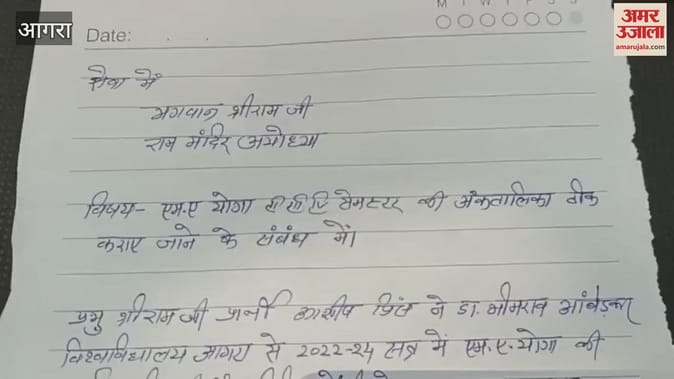 आगरा
M T W T F S S
अमर उजाला
amarujala.com
Date:
सेवा में
भगवान श्रीराम जी
राम मंदिर (अयोध्या
विषय- एम.ए योगा सेमेस्टर की अंकतालिका ठीक
कराए जाने के संबंध में।
प्रभु श्रीराम जी प्रार्थी सिंह ने डा. भीमराव आंबेडकर
विश्वविद्यालय आगरा से 2022-24 सत्र में एम.ए. योगा की